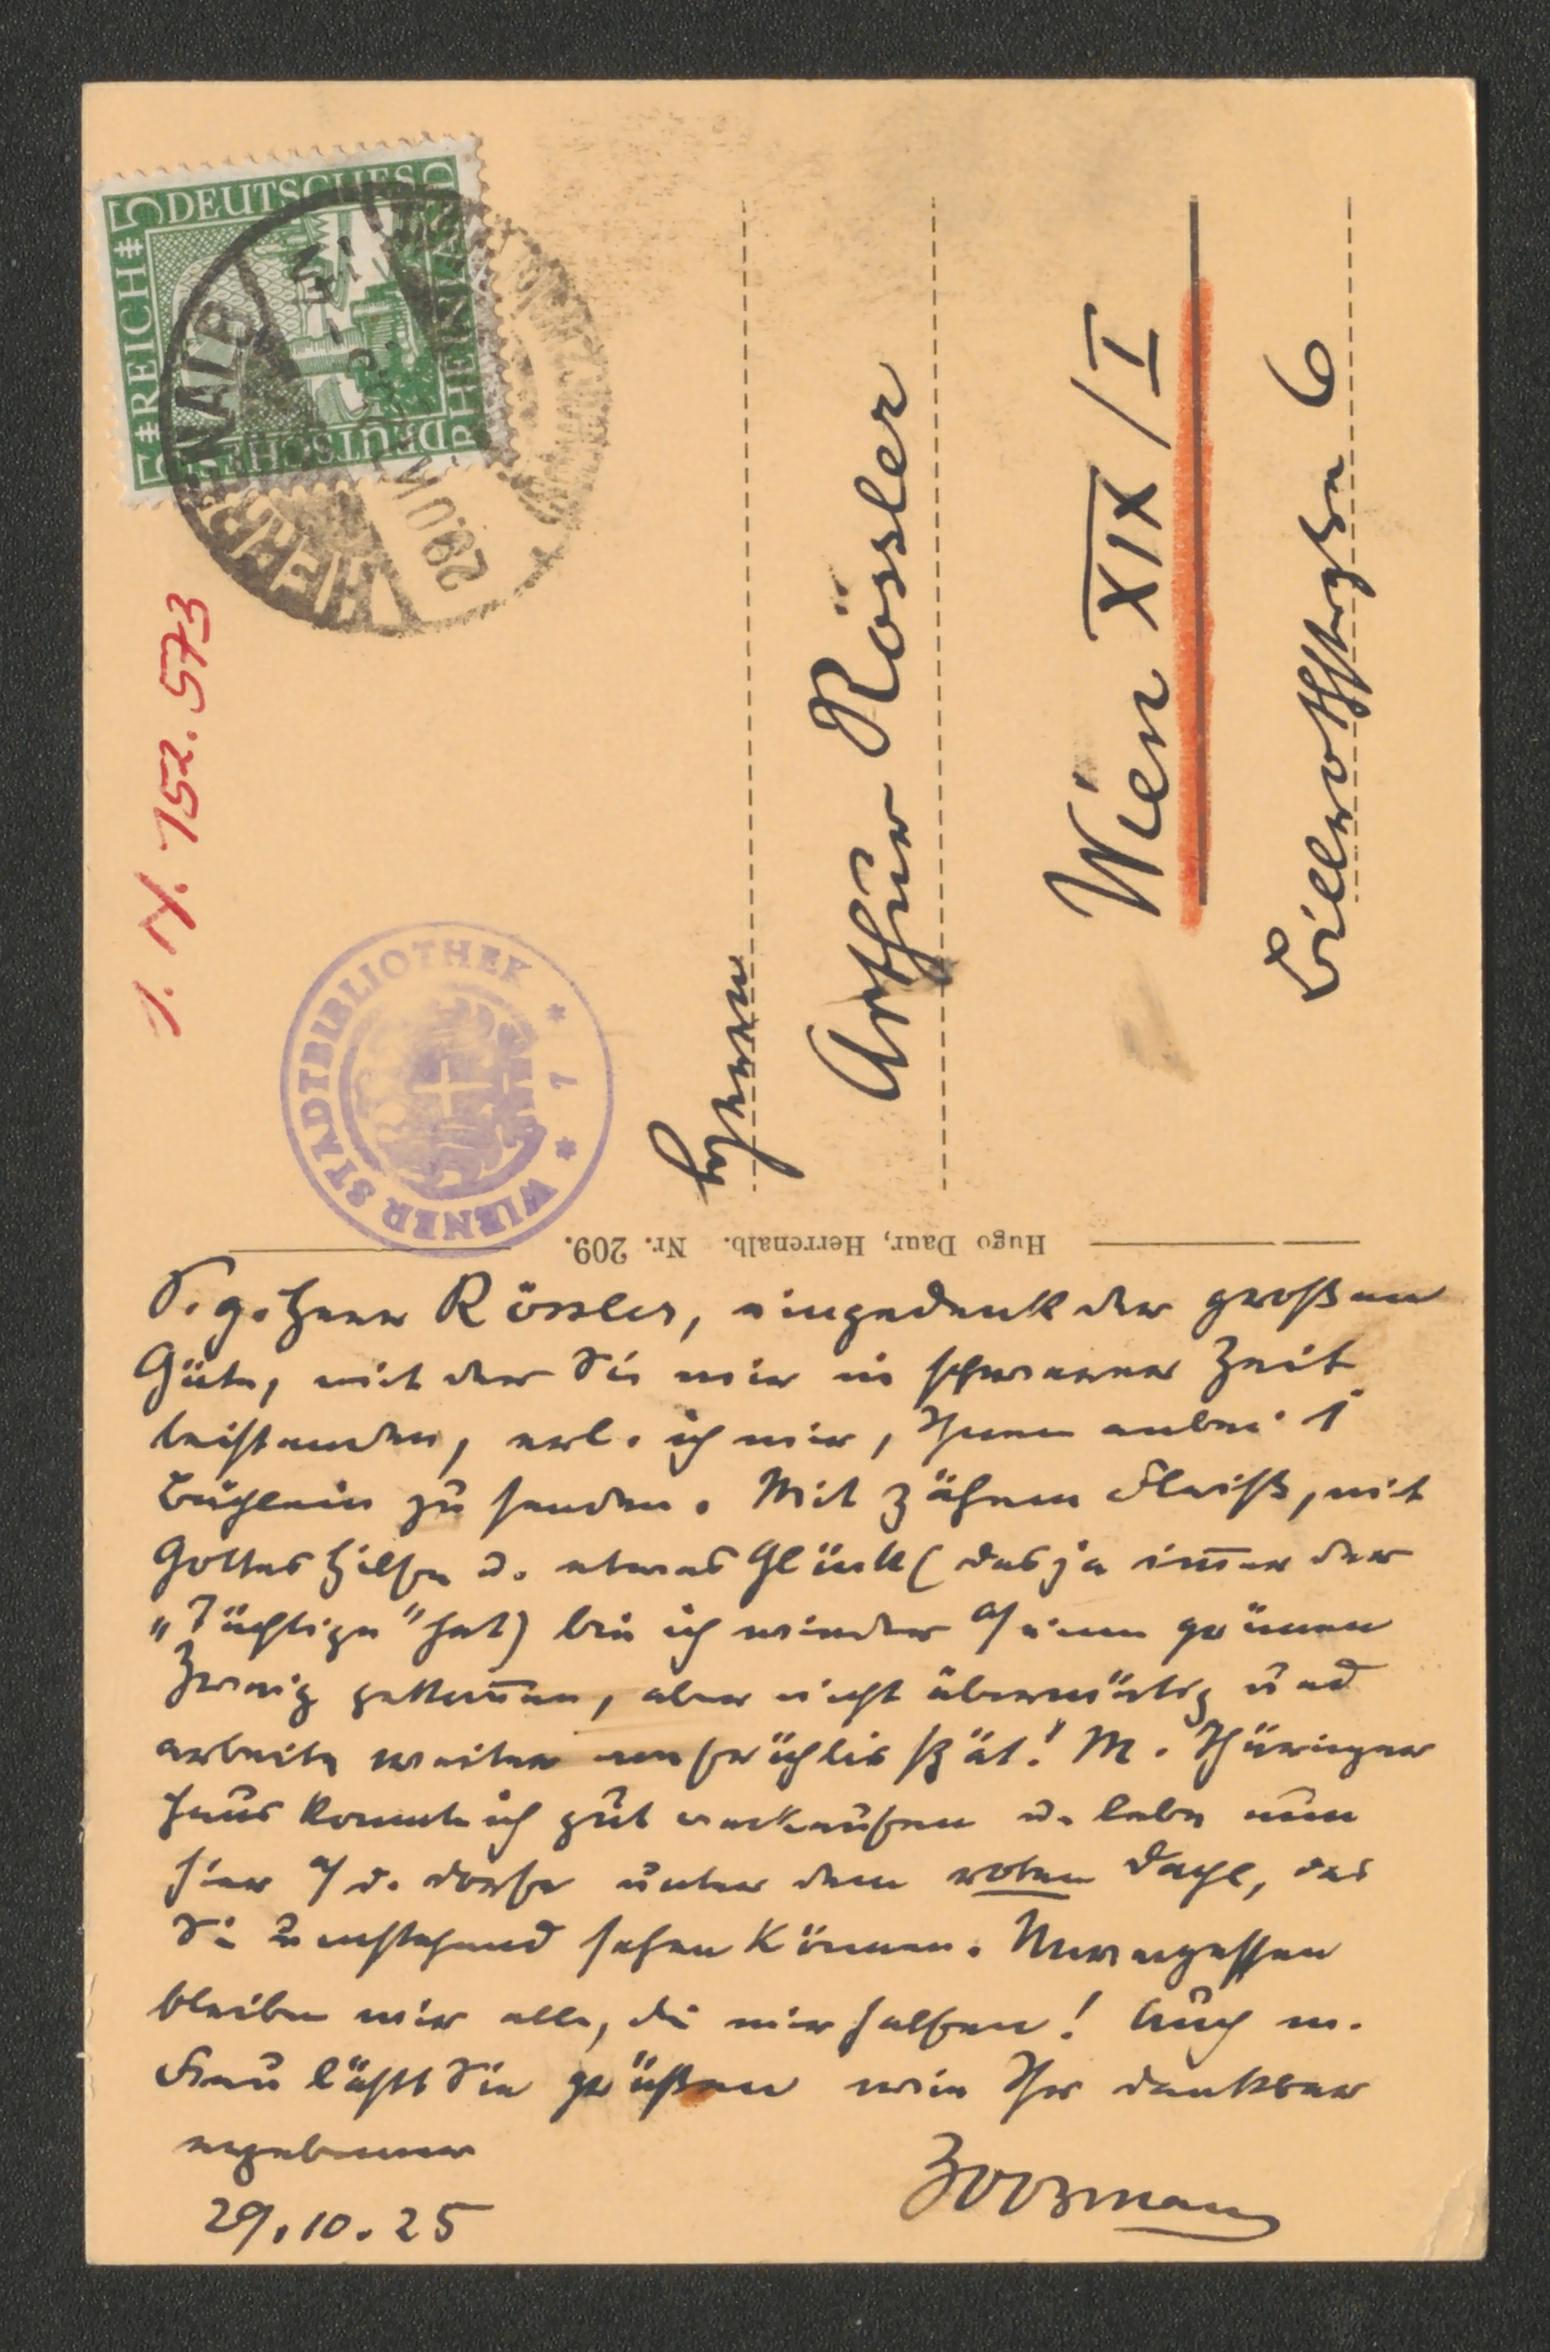 DEUTSCHES
REICH
RHEINLAND
DEUTSCHES
5
5
HERRENALB
28.OKT
I. N. 152.573
WIENER STADTBIBLIOTHEK * 1 *
Herrn
Arthur Rössler
Wien XIX/I
Billrothstraße 6
Hugo Daur, Herrenalb. Nr. 209.
S. g. Herr Rössler, eingedenk der großen
Güte, mit der Sie mir in schwerer Zeit
beistanden, erl. ich mir, Ihnen anbei 1
Büchlein zu senden. Mit zähem Fleiß, mit
Gottes Hilfe u. etwas Glück (das ja im̅er der
„Tüchtige" hat) bin ich wieder a/ einen grünen
Zweig gekom̅en, aber nicht übermütig und
arbeite weiter von früh bis spät! M. Thüringer
Haus konnte ich gut verkaufen u. lebe nun
hier a/ d. Dorfe unter dem roten Dache, das
Sie umstehend sehen können. Unvergessen
bleiben mir alle, die mir halfen! Auch m.
Frau läßt Sie grüßen wie Ihr dankbar
ergebener
Zoozmann
29.10.25